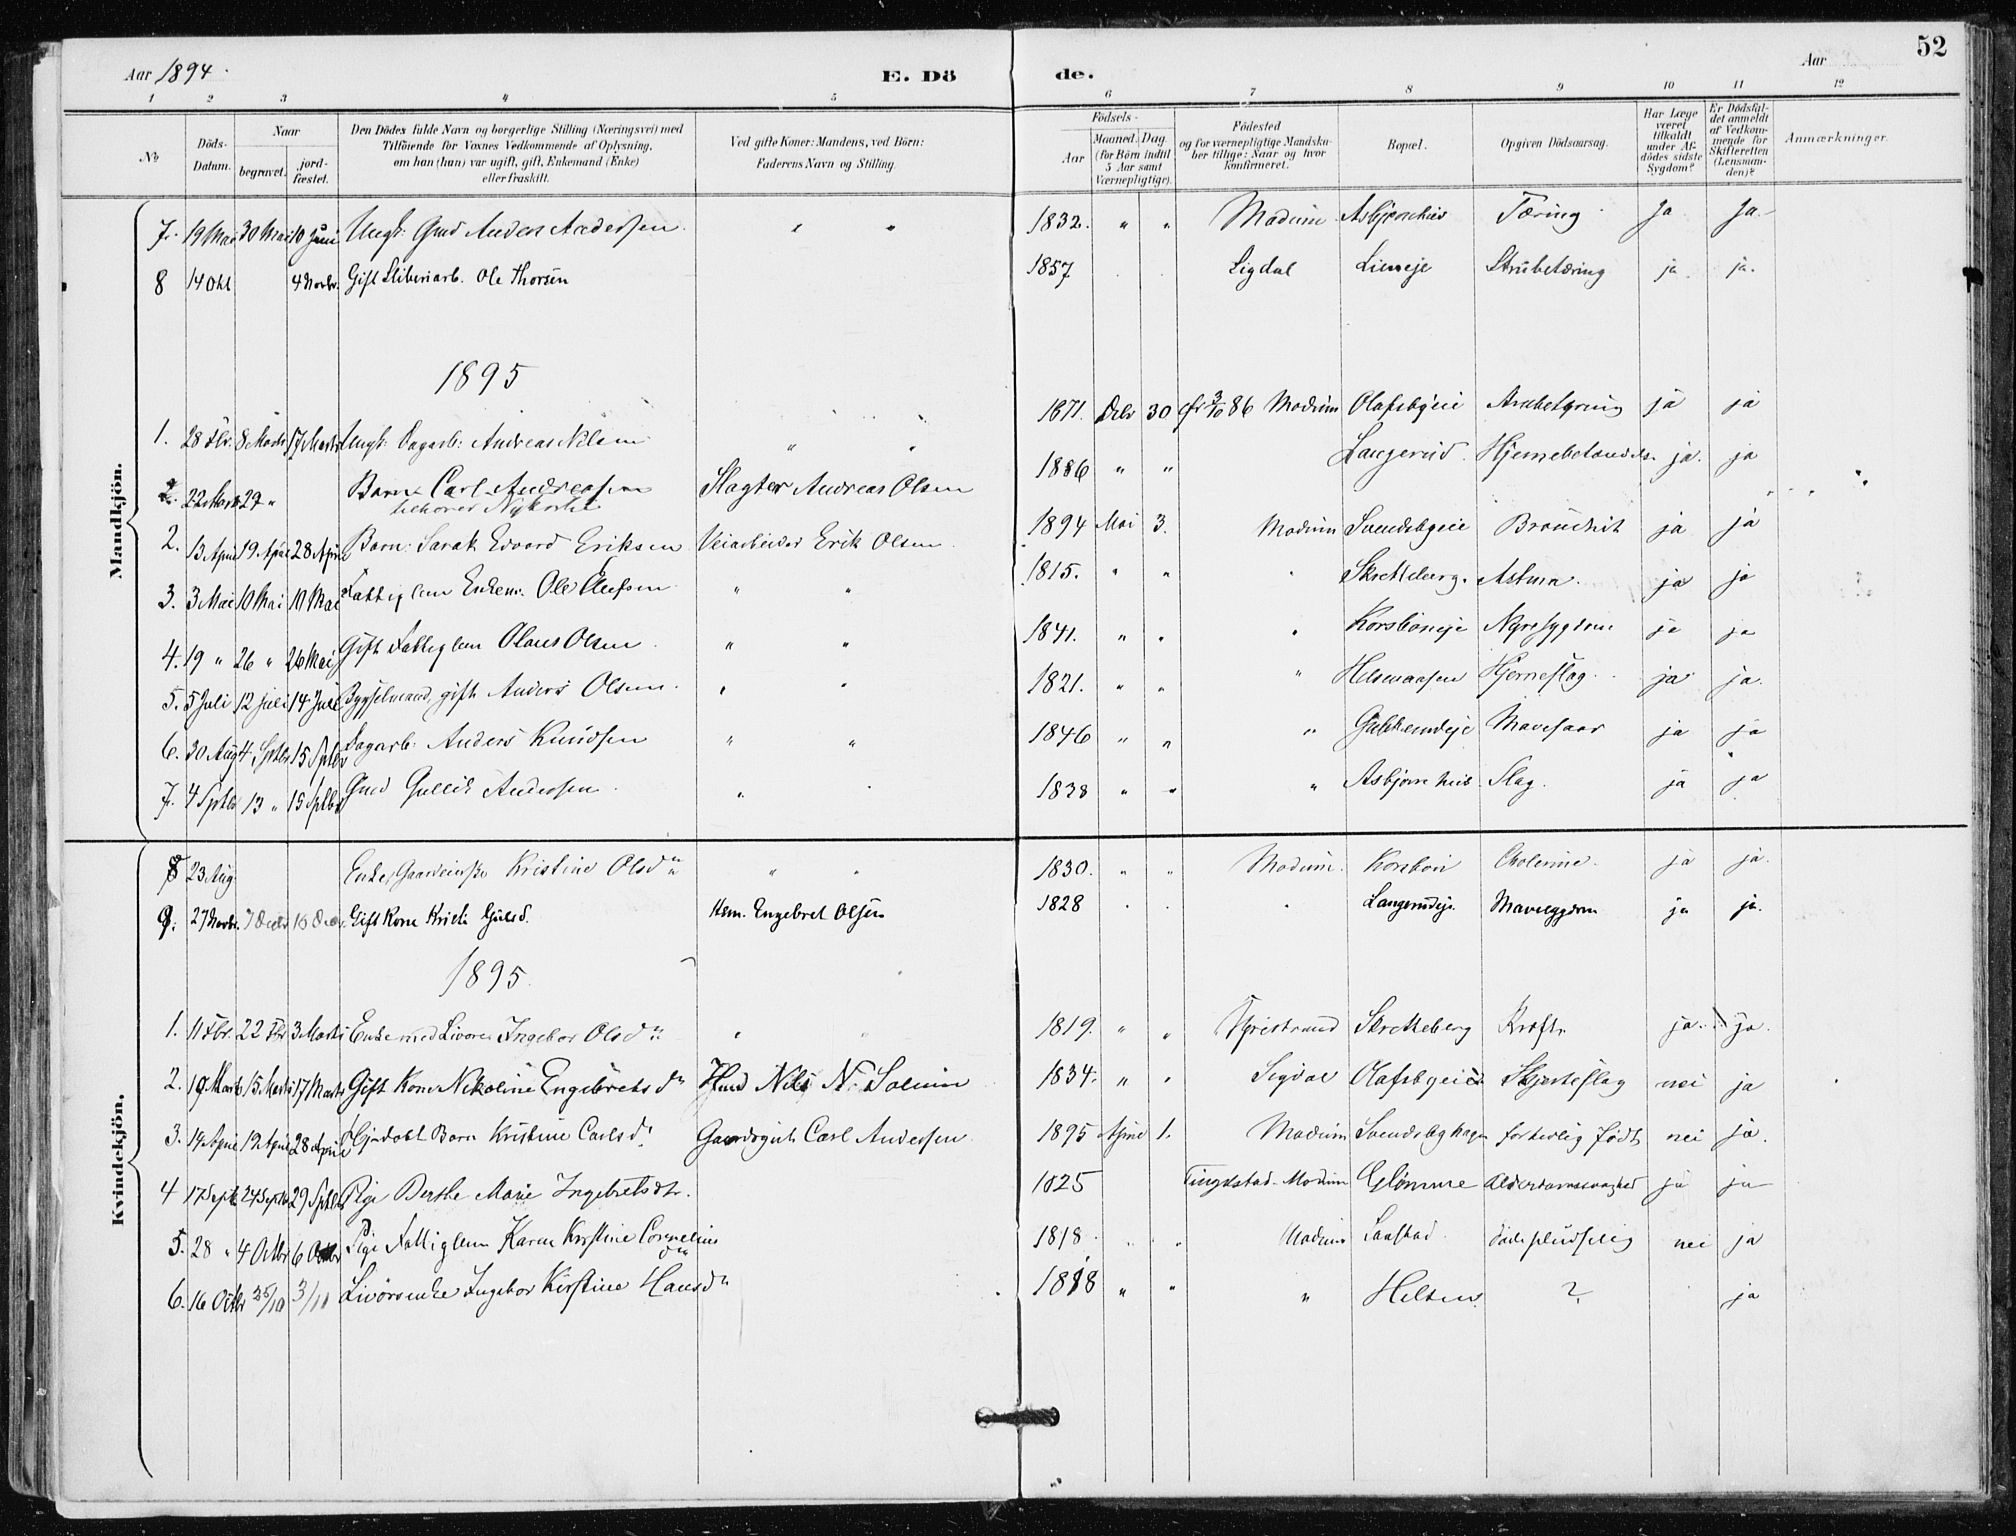 52
Aar 1894.
E. Dö
de.
Aar
1 2 3 4 5 6 7 8 9 10 11 12
No
Döds-Datum.
Naar
begravet.
jord-fæstet.
Den Dödes fulde Navn og borgerlige Stilling (Næringsvei) med
Tilföiende for Voxnes Vedkommende af Oplysning,
om han (hun) var ugift, gift, Enkemand (Enke)
eller fraskilt.
Ved gifte Koner: Mandens, ved Börn:
Faderens Navn og Stilling.
Födsels-
Aar
Maaned.
Dag.
(for Börn indtil
5 Aar samt
Værnepligtige).
Födested
og for værnepligtige Mandsku-
ber tillige: Naar og hvor
konfirmeret.
Bopæl.
Opgiven Dödsaarsag.
Har Læge
været
tilkaldt
under Af-
dödes sidste
Sygdom?
Er Dödsfal-
det anmeldt
af Vedkom-
mende for
Skifteretten
(Lensman-
den)?
Anmærkninger.
Mandkjön.
7. 19 Mai 30 Mai 10 Juni Ungk. Gmd Anders Andersen " " 1832. " " Modum Tæring Ja Ja
8 14 Okt 4 Novbr. Gift Sliberiarb. Ole Thorsen 1857 Sigdal Lieneje Strubetæring ja. ja.
1895
1. 28 Fbr. 8 Marts 17 Marts Ungk. Dagarb. Andreas Nilsen " " 1871. Debr 30 86 Modum Olafsbyeie ja ja
2. 22 Marts 29 " Barn Carl Andreasen Slagter Andreas Olsen 1886 " " Langerud Hjernebetændels. ja. ja
2. 13 April 19 April 28 April Barn Edvard Eriksen Veiarbeider Erik Olsen 1894 Mai 3. Modum Svendsbyeie Bronchit ja ja
3. 3 Mai 10 Mai 10 Mai Fattiglem Enkem. Ole Olefsen " " 1815. " " " Skretteberg. Astma. ja ja
4. 19 " 26 " 26 Mai Gift Fattiglem Olaus Olsen " " 1841. " " " Korsboneje Nyresygdom ja ja
5. 5 Juli 12 Juli 14 Juli Bygselmand, gift Anders Olsen. " " 1821. " " " Hjerneslag. ja ja.
6. 30 Aug 4 Sptbr 15 Sptbr Dagarb. Anders Knudsen " " 1846 " " " Mavesaar ja ja
7. 4 Sptbr 13 " 15 Sptbr Gmd Gullik Andersen. " 1838 " " " Slag. ja ja
Kvindekjön.
8 23 Aug Enke, Kristine Olsdn " " 1830. " " Modum. Korsbon Cholerine. ja ja.
9. 27 Novbr. 7 Decbr Gift Kone Kristi Gulsd. Hem. Engebret Olsen 1828 " Langerudeje Mavesygdom ja ja.
1895.
1. 11 Fbr. 22 Fbr 3 Marts Enke med Livøre Ingebor Olsdn " " 1819. " " Tyristrand Skretteberg Kræft ja. ja.
2. 10 Marts 15 Marts 17 Marts Gift Kone Nikoline Engebretsdn Hmd Nils N. Solum 1834. " " Sigdal Olafsbyeie nei ja
3. 14 April 19 April 28 April Hj. døbt Barn Kristine Carlsd. Carl Andersen 1895 April 1. Modum Svendsbyhagen fortidlig født nei ja.
4 17 Septb 24 Septbr 29 Sptbr Pige Berthe Marie Ingebretsdtr. 1825 Modum Glomme Alderdomssvaghed ja ja
5. 28 " 4 Octbr 6 Octbr Pige Fattiglem Karen Kirstine Cornelius
dn 1818. " " Modum Saastad døde pludselig nei ja
6. 16 Octbr 25/10 3/11 Livørsenke Ingebor Kirstine Hansdn 1818 " " " Helsen ? ja